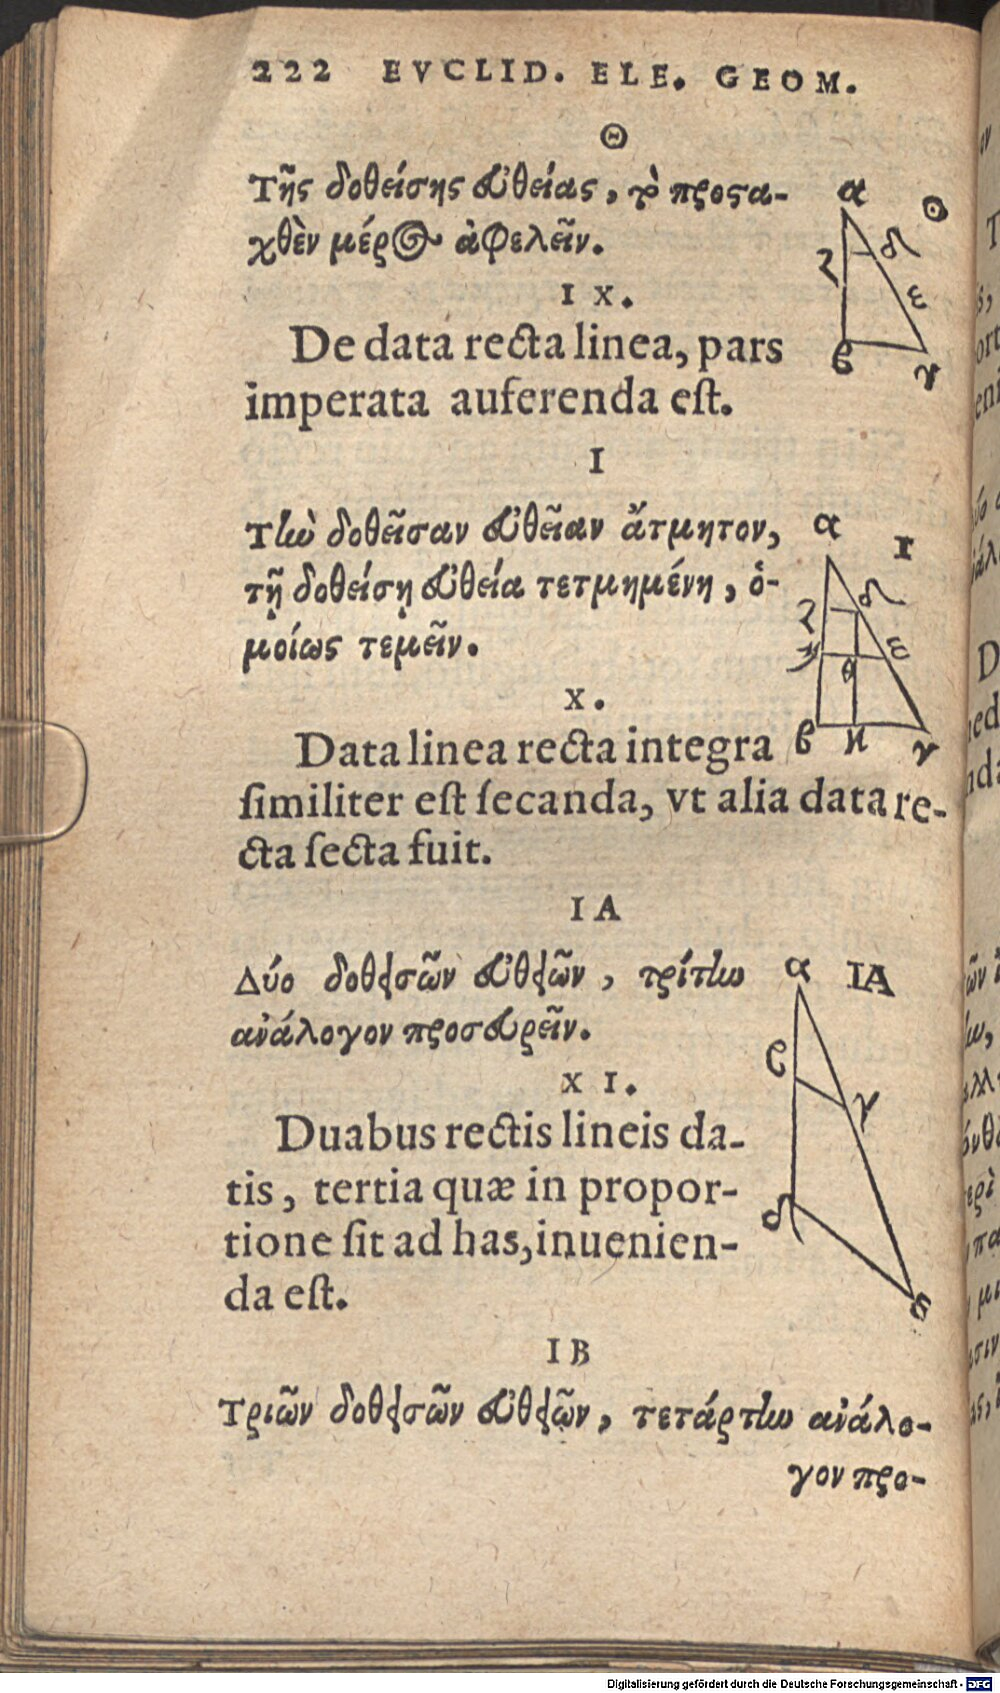 222 EVCLID. ELE. GEOM.
Θ
Τῆς δοθείσης εὐθείας, τὸ προςα-
χθὲν μέρος ἀφελεῖν.
α Θ
ζ δ
ε
β γ
IX.
De data recta linea, pars
imperata auferenda eſt.
I
Τὴν δοθεῖσαν εὐθεῖαν ἄτμητον,
τῇ δοθείσῃ εὐθεία τετμημένη, ὁ-
μοίως τεμεῖν.
α I
ζ δ
θ ε
β κ γ
X.
Data linea recta integra
ſimiliter eſt ſecanda, vt alia data re-
cta ſecta fuit.
IA
Δύο δοθεισῶν εὐθειῶν, τρίτην
ἀνάλογον προσευρεῖν.
α IA
β
γ
δ
ε
XI.
Duabus rectis lineis da-
tis, tertia quæ in propor-
tione ſit ad has, inuenien-
da eſt.
IB
Τριῶν δοθεισῶν εὐθειῶν, τετάρτην ἀνάλο-
γον προ-
Digitalisierung gefördert durch die Deutsche Forschungsgemeinschaft - DFG